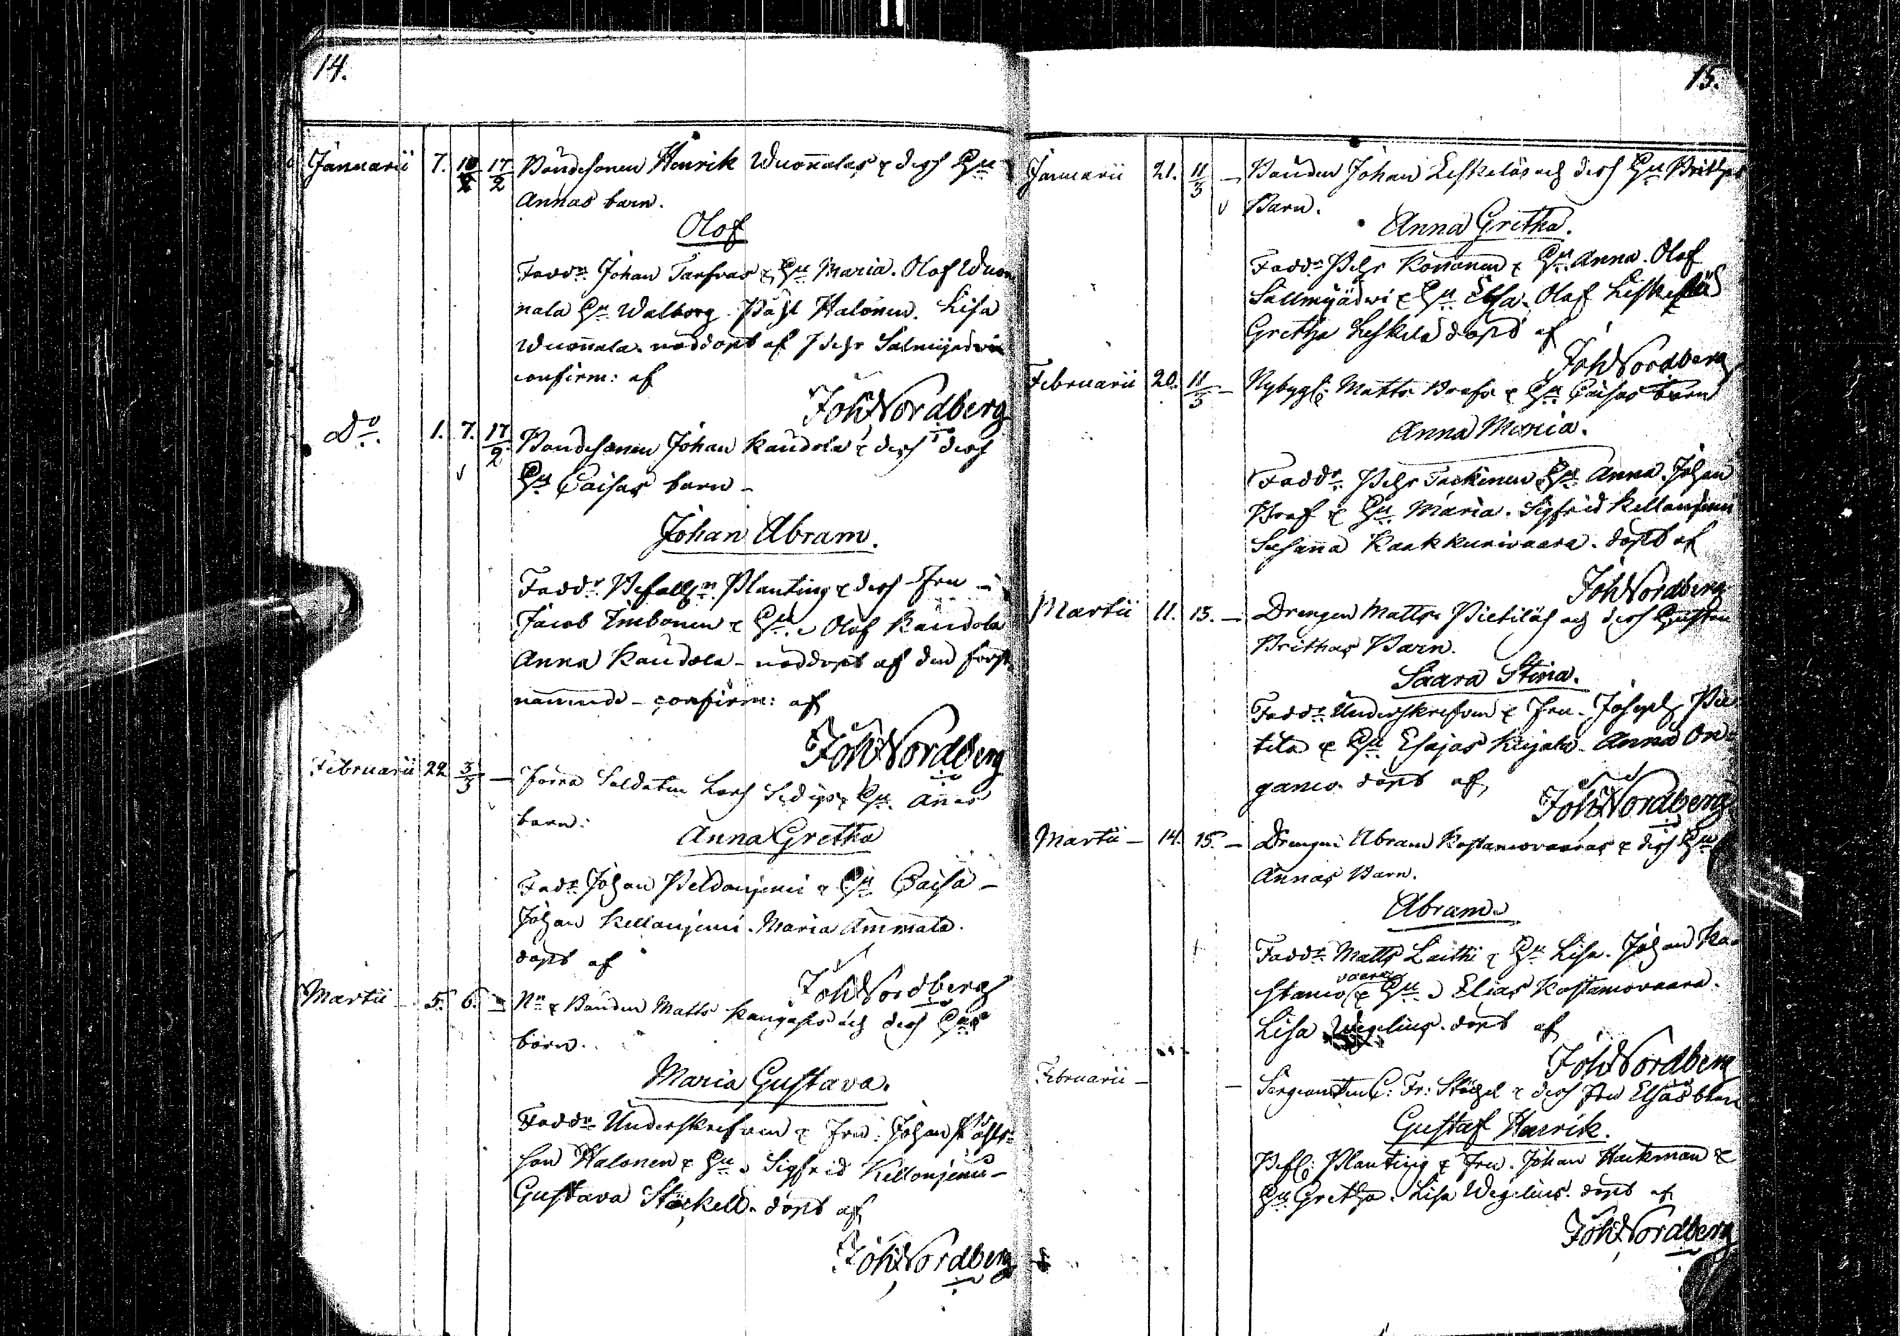 14.
Januarii 7. 10/2 17/2 Bondesonen Henrik Wuonnalas & dess Hu
Annas barn.
Olof
Fadd: Johan & Hu Maria. Olof Wuon
nala Hu Walborg. Påhl Halonen. Lisa
Wuonnala. nöddöpt af Pehr Salmijärwi
confirm: af
Joh Nordberg
Do 1. 7. 17/2 Bondesonen Johan Kaudola & dess dess
Hu Caisas barn
Johan Abram.
Fadd: Befalln Planting & dess Fru
Jacob Hu. Olof Kaudola
Anna Kaudola nöddöpt af den först
nämnde confirm: af
Joh Nordberg
Februarii 22 3/3 förra Soldaten Lars Hu Annas
barn.
Anna Gretha
Fadd: Johan Peldonjemi & Hu Caisa
Johan Kellonjemi. Maria Ammala.
döpt af
Joh Nordberg
Martii 5. 6. Nn & Bonden Matts Kangas och dess Hus
barn.
Maria Gustava.
Fadd: Underskrefven & Fru. Johan Påhls-
son Halonen & Hu. Sigfrid Kellonjemi
Gustava Stöckell. döpt af
Joh Nordberg
15.
Januarii 21. 11/3 Bonden Johan Leskelös och dess Hu Brithas
Barn.
Anna Gretha.
Fadd: Pehr Korronen & Hu Anna. Olof
Sallmijärwi & Hu Elsa. Olof Leskelä
Gretha Leskelä döpt af
Joh Nordberg
Februarii 20. 11/3 Nybygg: Matts & Hu Caisas barn
Anna Maria.
Fadd: Pehr Tackinen Hu Anna. Johan
& Hu Maria. Sigfrid Kellonjemi
Susanna Kaakkurivaara. döpt af
Joh Nordberg
Martii 11. 13. Drengen Matts Pietiläs och dess Hustru
Brithas Barn.
Saara Stina.
Fadd: Underskrefven & Fru. Joseph Pie
tilä & Hu Esajas Anna On
gamo. döpt af
Joh Nordberg
Martii 14. 15. Drengen Abram Kostamovaaras & dess Hu
Annas Barn.
Abram.
Fadd: Matts Laithi & Hu Lisa. Johan Ko-
stamo vaara & Hu. Elias Kostamovaara.
Lisa Wegelius. döpt af
Joh Nordberg
Februarii Sergeanten C: Fr: Stöckel & dess Fru Elsas barn
Gustaf Henrik.
Befl: Planting & Fru. Johan Hackman &
Hu Gretha. Lisa Wegelius. döpt af
Joh Nordberg